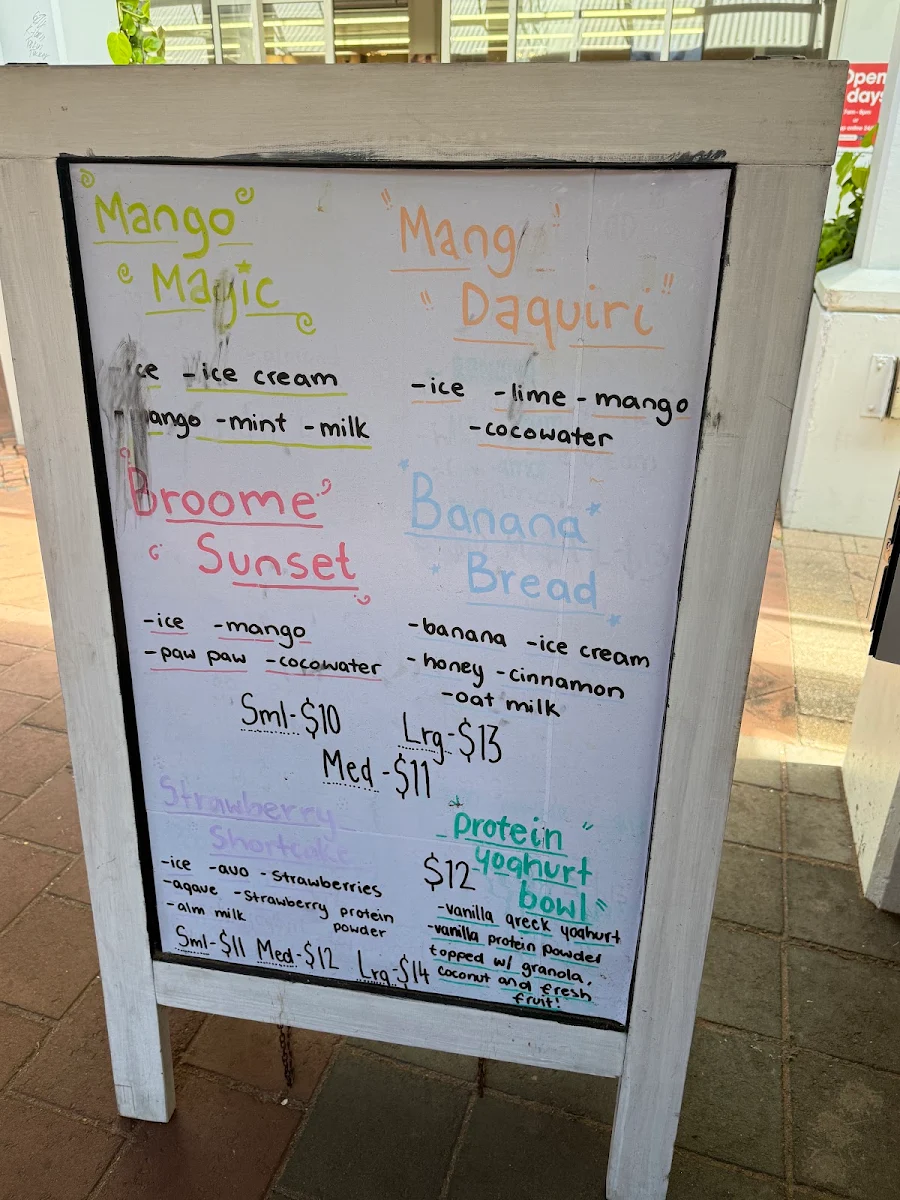 "Mango"
Magic
ce -ice cream
ango -mint -milk
"Broome"
Sunset
-ice -mango
-paw paw -cocowater
"Mang "
"Daquiri"
-ice -lime -mango
-cocowater
Banana
Bread
-banana -ice cream
-honey -cinnamon
-oat milk
Sml-$10
Lrg-$13
Med-$11
Strawberry
Shortcake
-ice -avo -strawberries
-agave -strawberry protein
powder
-alm milk
Sml-$11 Med-$12 Lrg-$14
protein "
yoghurt
bowl"
$12
-vanilla greek yoghurt
-vanilla protein powder
topped w/ granola,
coconut and fresh
fruit!
Open
days